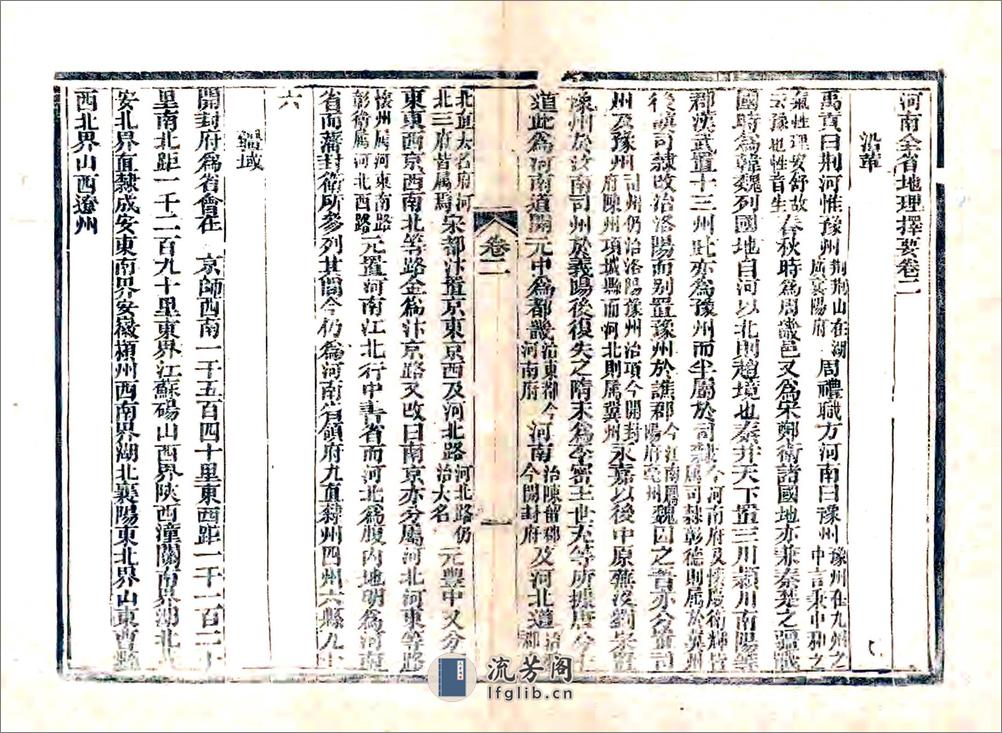 河南全省地理擇要卷二
沿革
禹貢曰荆河惟豫州荆山在湖廣襄陽府周禮職方河南曰豫州豫州在九州之中言秉中和之
氣性理安舒故云豫也春秋時爲周畿邑又爲宋鄭衛諸國地亦兼秦楚之疆戰
國時爲韓魏列國地自河以北則趙境也秦并天下置三川潁川南陽等
郡漢武置十三州此亦爲豫州而半屬於司隸今河南府及懷慶衛輝屬司隸彰德則屬於冀州
後漢司隸改治洛陽而别置豫州於譙郡今江南鳳陽府亳州魏因之晋亦分置司
州及豫州司州仍治洛陽豫州治項今開封府陳州項城縣而河北則屬冀州永嘉以後中原蕪没劉宋置
豫州於汝南司州於義陽後復失之隋末爲李密王世充等所據唐分十
道此爲河南道開元中爲都畿治東都今河南府河南治陳留郡今開封府及河北道
卷二
一
北直大名府河北三府皆屬焉宋都汴置京東京西及河北路河北路仍治大名元豐中又分
東東西京西南北等路金爲汴京路又改曰南京亦分屬河北河東等路
懷州屬河東南路彰衛屬河北西路元置河南江北行中書省而河北爲腹内地明爲河南
省而藩封衛所參列其間今仍爲河南省領府九直隸州四州六縣九十
六
疆域
開封府爲省會在 京師西南一千五百四十里東西距一千一百二十
里南北距一千二百九十里東界江蘇碭山西界陝西潼關南界湖北
安北界直隸成安東南界安徽潁州西南界湖北襄陽東北界山東曹縣
西北界山西遼州
流芳阁
lfglib.cn